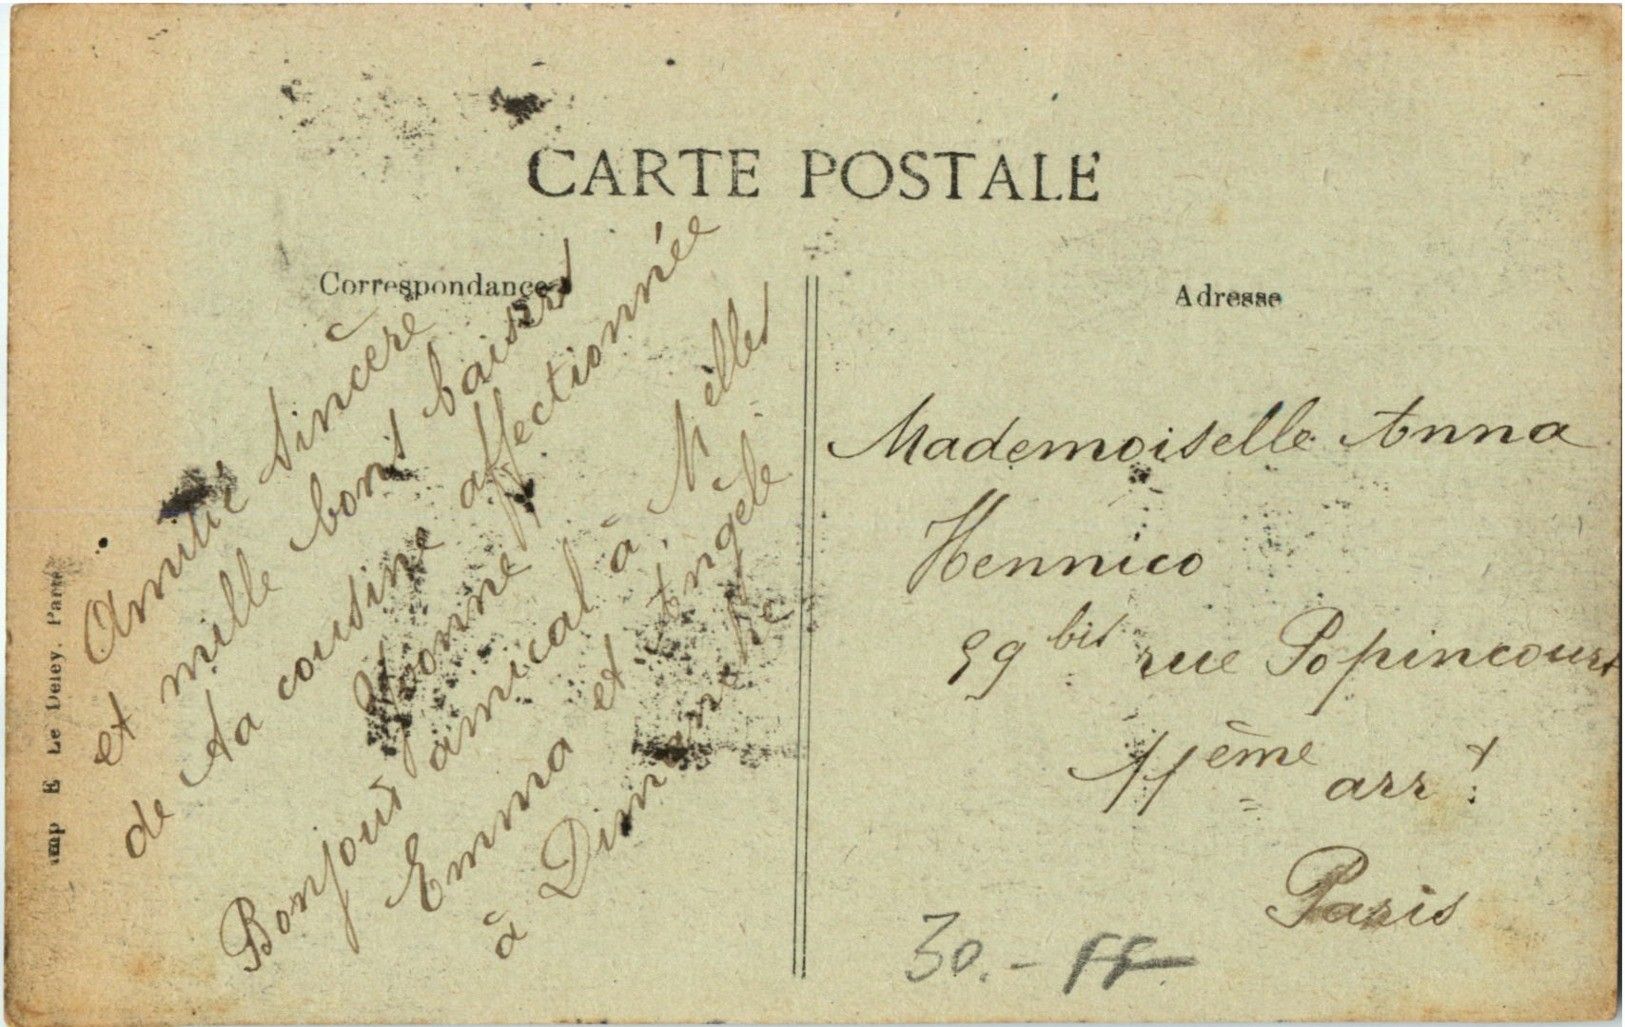 CARTE POSTALE
Correspondance
Amitié Sincère
et mille bons baisers
de ta cousine affectionnée
Yvonne
Bonjour amical à Melles
Emma et Angèle
à Dimanche
Imp E Le Deley, Paris
Adresse
Mademoiselle Anna
Hennico
59 bis rue Popincourt
11ème arrt
Paris
30.-